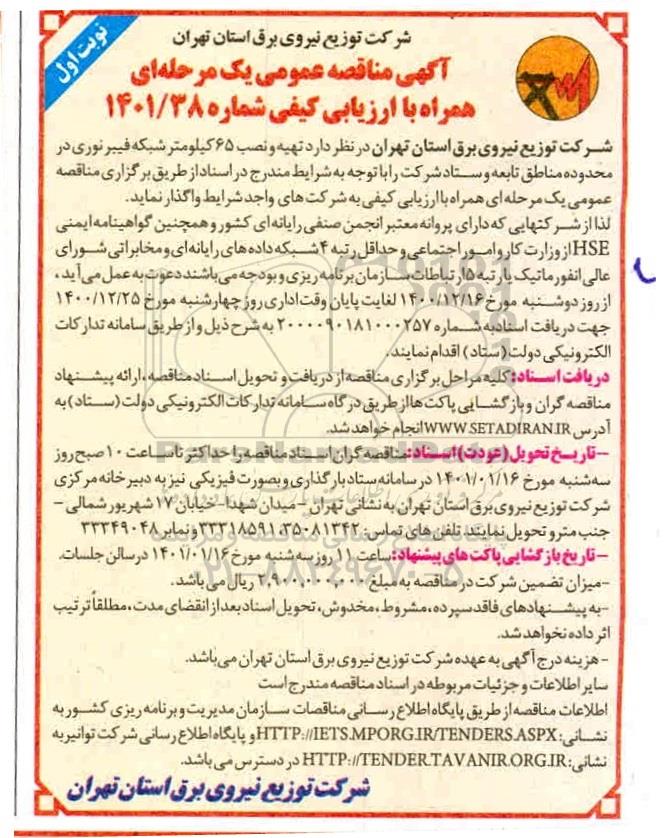 نوبت اول
شرکت توزیع نیروی برق استان تهران
آگهی مناقصه عمومی یک مرحله‌ای
همراه با ارزیابی کیفی شماره ۱۴۰۱/۳۸
شرکت توزیع نیروی برق استان تهران در نظر دارد تهیه و نصب ۶۵ کیلومتر شبکه فیبر نوری در
محدوده مناطق تابعه و ستاد شرکت را با توجه به شرایط مندرج در اسناد از طریق برگزاری مناقصه
عمومی یک مرحله‌ای همراه با ارزیابی کیفی به شرکت های واجد شرایط واگذار نماید.
لذا از شرکتهایی که دارای پروانه معتبر انجمن صنفی رایانه‌ای کشور و همچنین گواهینامه ایمنی
HSE از وزارت کار و امور اجتماعی و حداقل رتبه ۴ شبکه داده های رایانه‌ای و مخابراتی شورای
عالی انفورماتیک یا رتبه ۵ ارتباطات سازمان برنامه ریزی و بودجه می باشند دعوت به عمل می آید ،
از روز دوشنبه مورخ ۱۴۰۰/۱۲/۱۶ لغایت پایان وقت اداری روز چهارشنبه مورخ ۱۴۰۰/۱۲/۲۵
جهت دریافت اسناد به شماره ۲۰۰۰۰۹۰۱۸۱۰۰۰۲۵۷ به شرح ذیل و از طریق سامانه تدارکات
الکترونیکی دولت (ستاد) اقدام نمایند.
دریافت اسناد: کلیه مراحل برگزاری مناقصه از دریافت و تحویل اسناد مناقصه ، ارائه پیشنهاد
مناقصه گران و بازگشایی پاکت ها از طریق درگاه سامانه تدارکات الکترونیکی دولت (ستاد) به
آدرس WWW.SETADIRAN.IR انجام خواهد شد.
-تاریخ تحویل (عودت) اسناد: مناقصه گران اسناد مناقصه را حداکثر تا ساعت ۱۰ صبح روز
سه شنبه مورخ ۱۴۰۱/۰۱/۱۶ در سامانه ستاد بارگذاری و بصورت فیزیکی نیز به دبیرخانه مرکزی
شرکت توزیع نیروی برق استان تهران به نشانی تهران - میدان شهدا- خیابان ۱۷ شهریور شمالی -
جنب مترو تحویل نمایند. تلفن های تماس : ۳۵۰۸۱۳۴۲، ۳۳۳۱۸۵۹۱ و نمابر ۳۳۳۴۹۰۴۸
-تاریخ بازگشایی پاکت های پیشنهاد: ساعت ۱۱ روز سه شنبه مورخ ۱۴۰۱/۰۱/۱۶ در سالن جلسات.
-میزان تضمین شرکت در مناقصه به مبلغ ۲,۹۰۰,۰۰۰,۰۰۰ ریال می باشد.
-به پیشنهادهای فاقد سپرده، مشروط ، مخدوش، تحویل اسناد بعد از انقضای مدت، مطلقاً ترتیب
اثر داده نخواهد شد.
- هزینه درج آگهی به عهده شرکت توزیع نیروی برق استان تهران می باشد.
سایر اطلاعات و جزئیات مربوطه در اسناد مناقصه مندرج است
اطلاعات مناقصه از طریق پایگاه اطلاع رسانی مناقصات سازمان مدیریت و برنامه ریزی کشور به
نشانی: HTTP://IETS.MPORG.IR/TENDERS.ASPX و پایگاه اطلاع رسانی شرکت توانیر به
نشانی: HTTP://TENDER.TAVANIR.ORG.IR در دسترس می باشد.
شرکت توزیع نیروی برق استان تهران